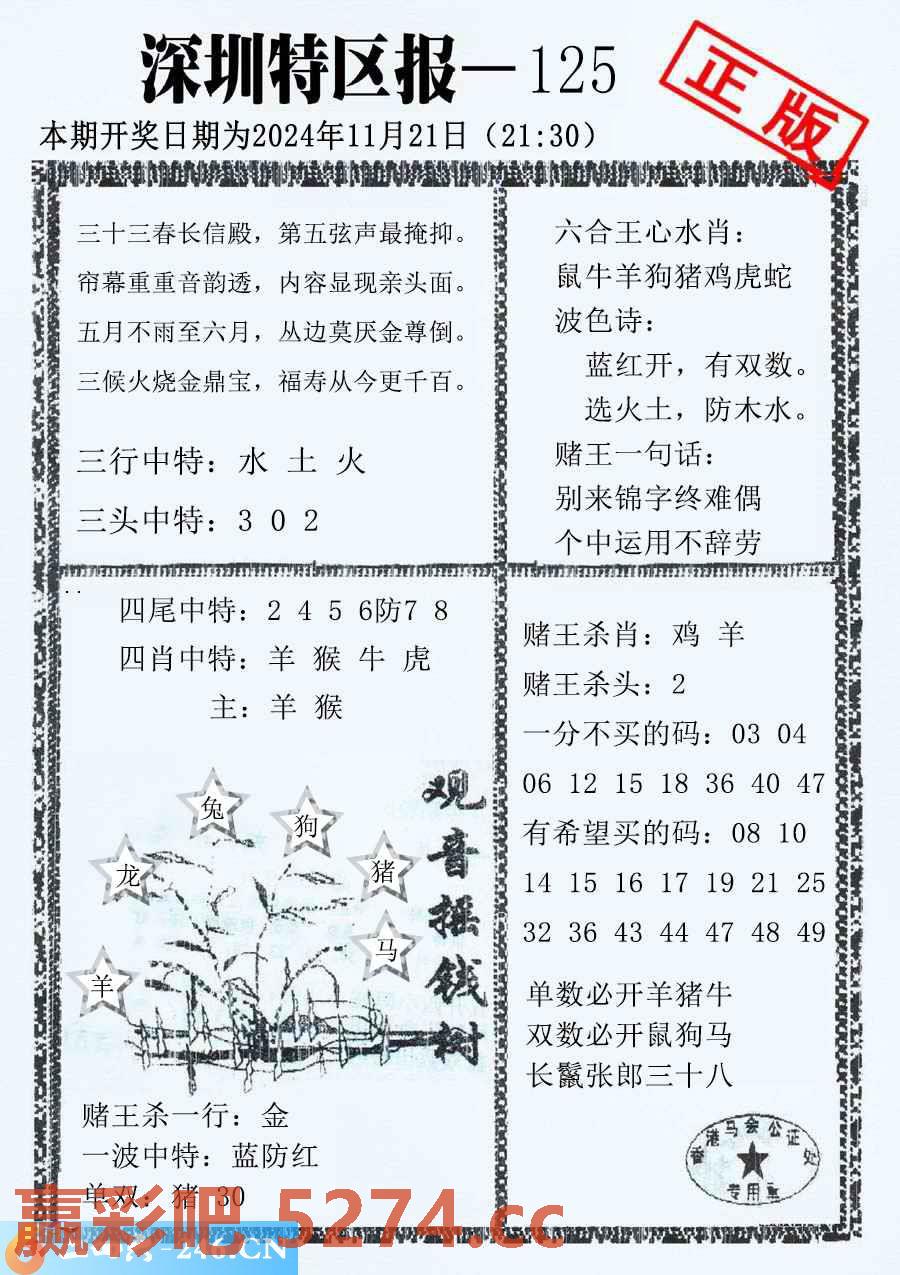 深圳特区报—125
正版
本期开奖日期为2024年11月21日（21:30）
三十三春长信殿，第五弦声最掩抑。
帘幕重重音韵透，内容显现亲头面。
五月不雨至六月，丛边莫厌金尊倒。
三候火烧金鼎宝，福寿从今更千百。
三行中特：水 土 火
三头中特：3 0 2
六合王心水肖：
鼠牛羊狗猪鸡虎蛇
波色诗：
蓝红开，有双数。
选火土，防木水。
赌王一句话：
别来锦字终难偶
个中运用不辞劳
四尾中特：2 4 5 6防7 8
四肖中特：羊 猴 牛 虎
主：羊 猴
兔
狗
龙
猪
马
羊
观音摇钱树
赌王杀一行：金
一波中特：蓝防红
单双：猪 30
赌王杀肖：鸡 羊
赌王杀头：2
一分不买的码：03 04
06 12 15 18 36 40 47
有希望买的码：08 10
14 15 16 17 19 21 25
32 36 43 44 47 48 49
单数必开羊猪牛
双数必开鼠狗马
长鬣张郎三十八
香港马会公证处
专用章
赢彩吧 5274.cc
-246.CN